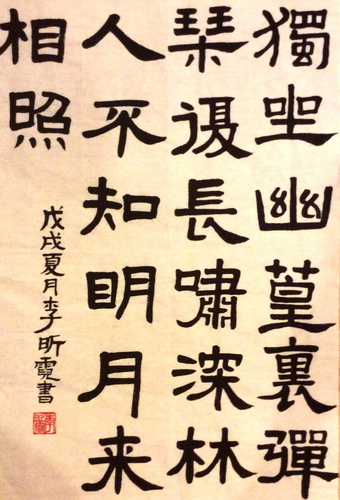 獨坐幽篁裏彈
琴復長嘯深林
人不知明月来
相照
戊戌夏月李昕霓書